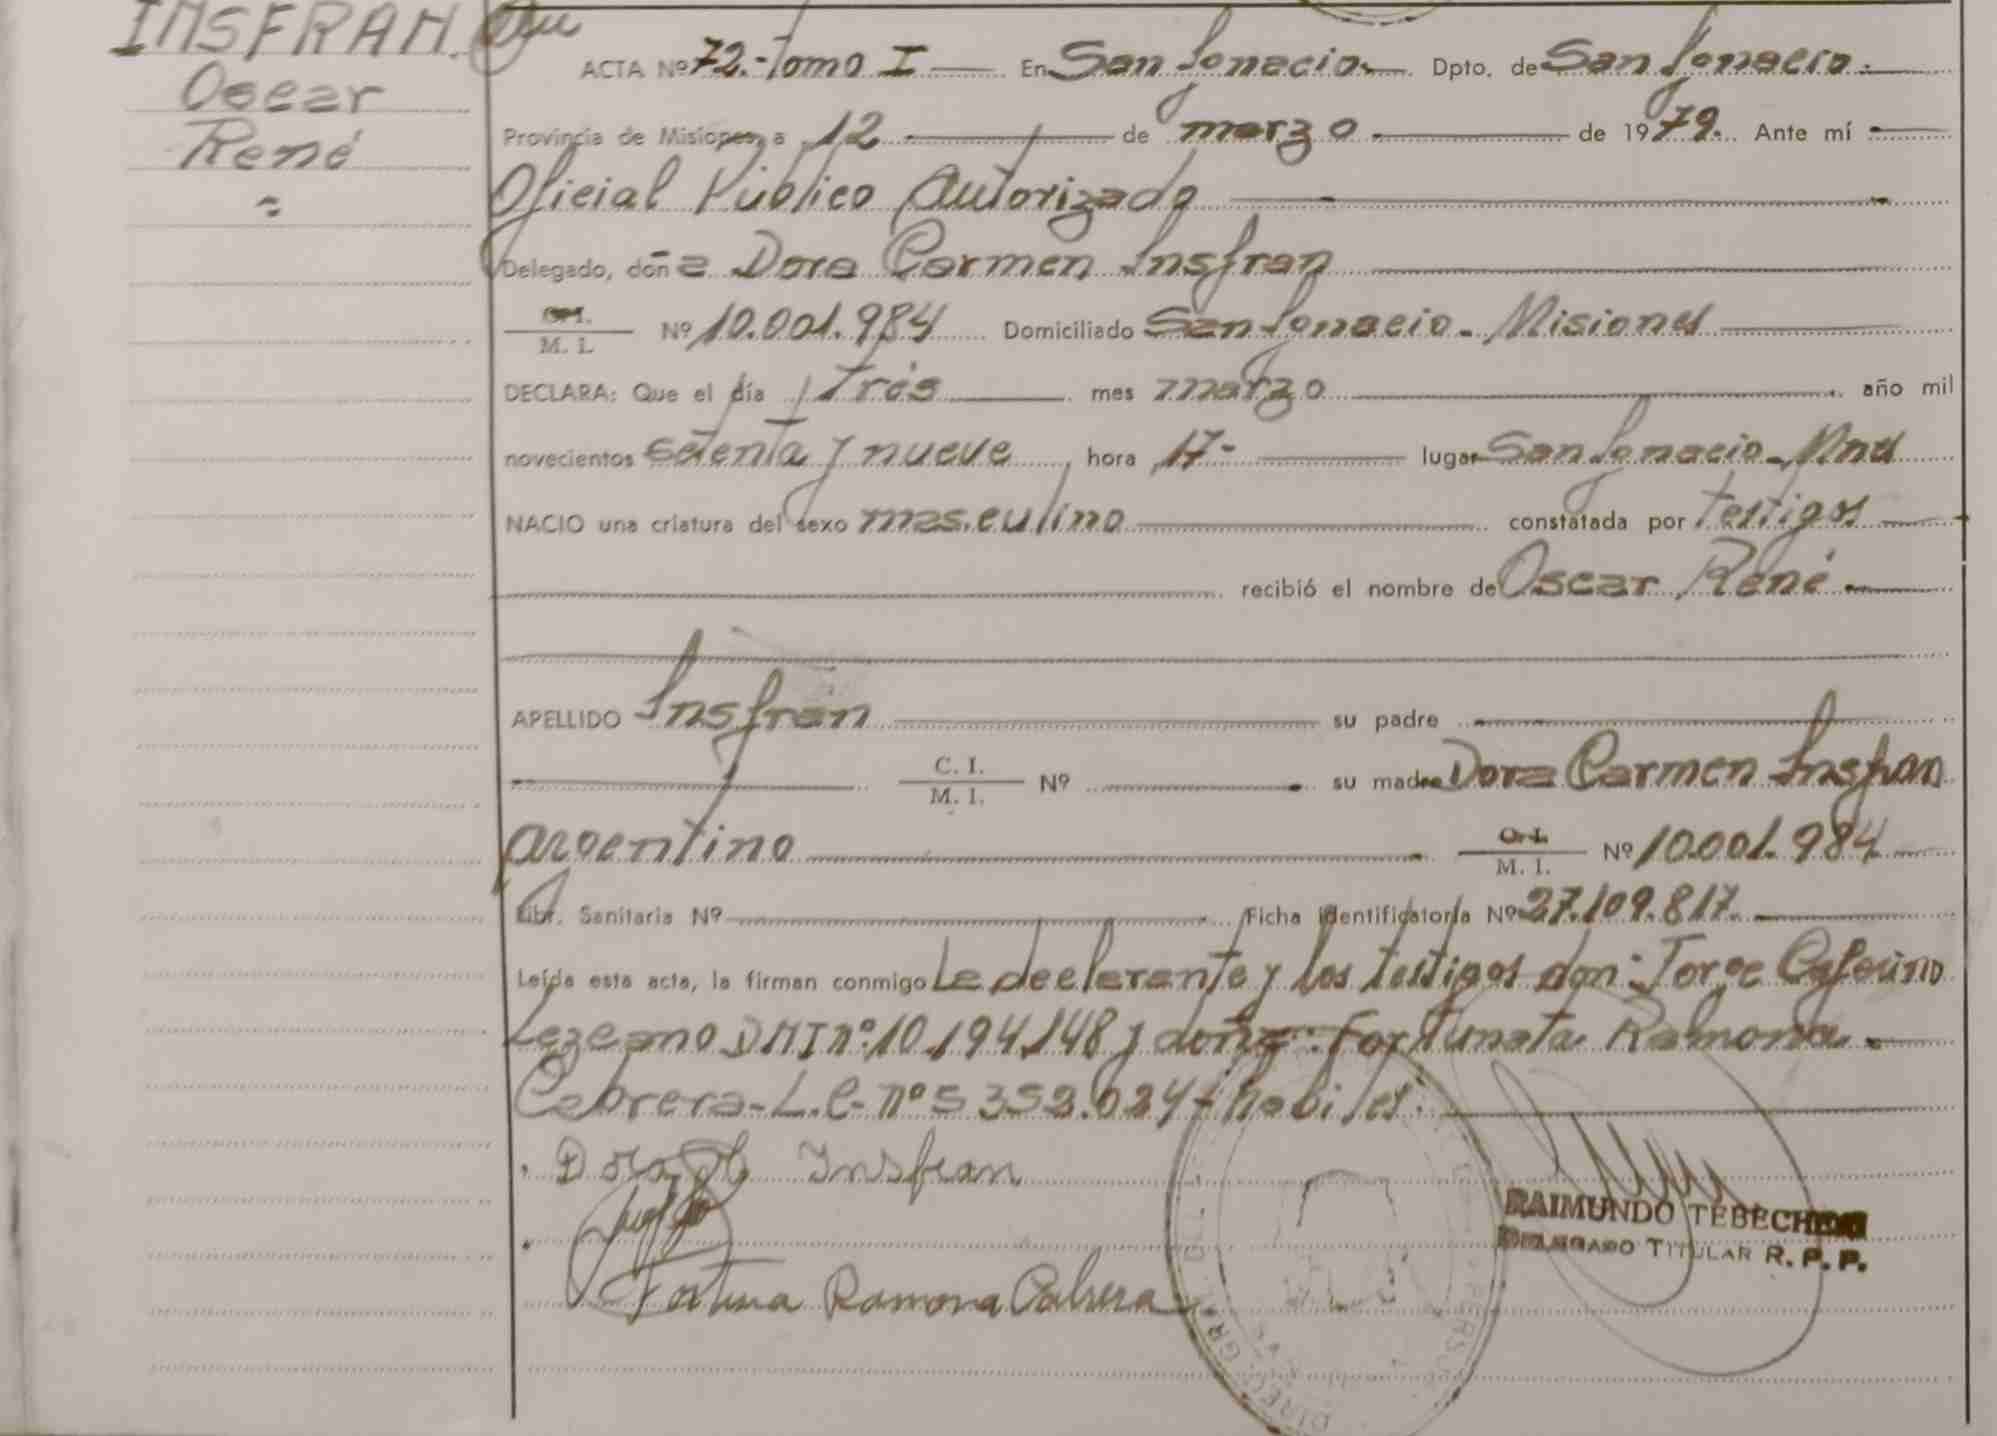 INSFRAN.
Oscar
René
ACTA Nº 72.- Tomo I — En San Ignacio — Dpto. de San Ignacio.
Provincia de Misiones, a 12 — de marzo — de 1979. Ante mí
Oficial Público Autorizado
Delegado, doña Dora Carmen Insfran
C. I. / M. I. Nº 10.001.984 Domiciliado San Ignacio - Misiones
DECLARA: Que el día Tres mes marzo año mil
novecientos setenta y nueve hora 17- lugar San Ignacio - Mnes
NACIO una criatura del sexo masculino constatada por testigos
recibió el nombre de Oscar René
APELLIDO Insfran su padre
C. I. / M. I. Nº su madre Dora Carmen Insfran
argentino C. I. / M. I. Nº 10.001.984
Libr. Sanitaria Nº Ficha Identificatoria Nº 27.109.817.
Leída esta acta, la firman conmigo la declarante y los testigos don: Jorge Ceferino
Lezcano DNI nº: 10.194.148 y doña: Fortunata Ramona
Cabrera - L.C. nº 5 352.024 - hábiles.
Dora Insfran
Fortuna Ramona Cabrera
RAIMUNDO TEBECHERI
DELEGADO TITULAR R. P. P.